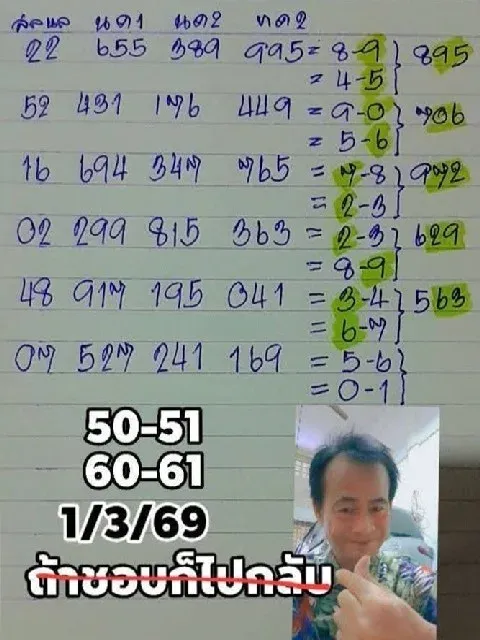 22 655 389 995 = 8-9 } 895
= 4-5
52 431 176 449 = 9-0 } 706
= 5-6
16 694 347 765 = 7-8 } 972
= 2-3
02 299 815 363 = 2-3 } 629
= 8-9
48 917 195 041 = 3-4 } 563
= 6-7
07 527 241 169 = 5-6 }
= 0-1
50-51
60-61
1/3/69
ถ้าชอบก็ไปกลับ